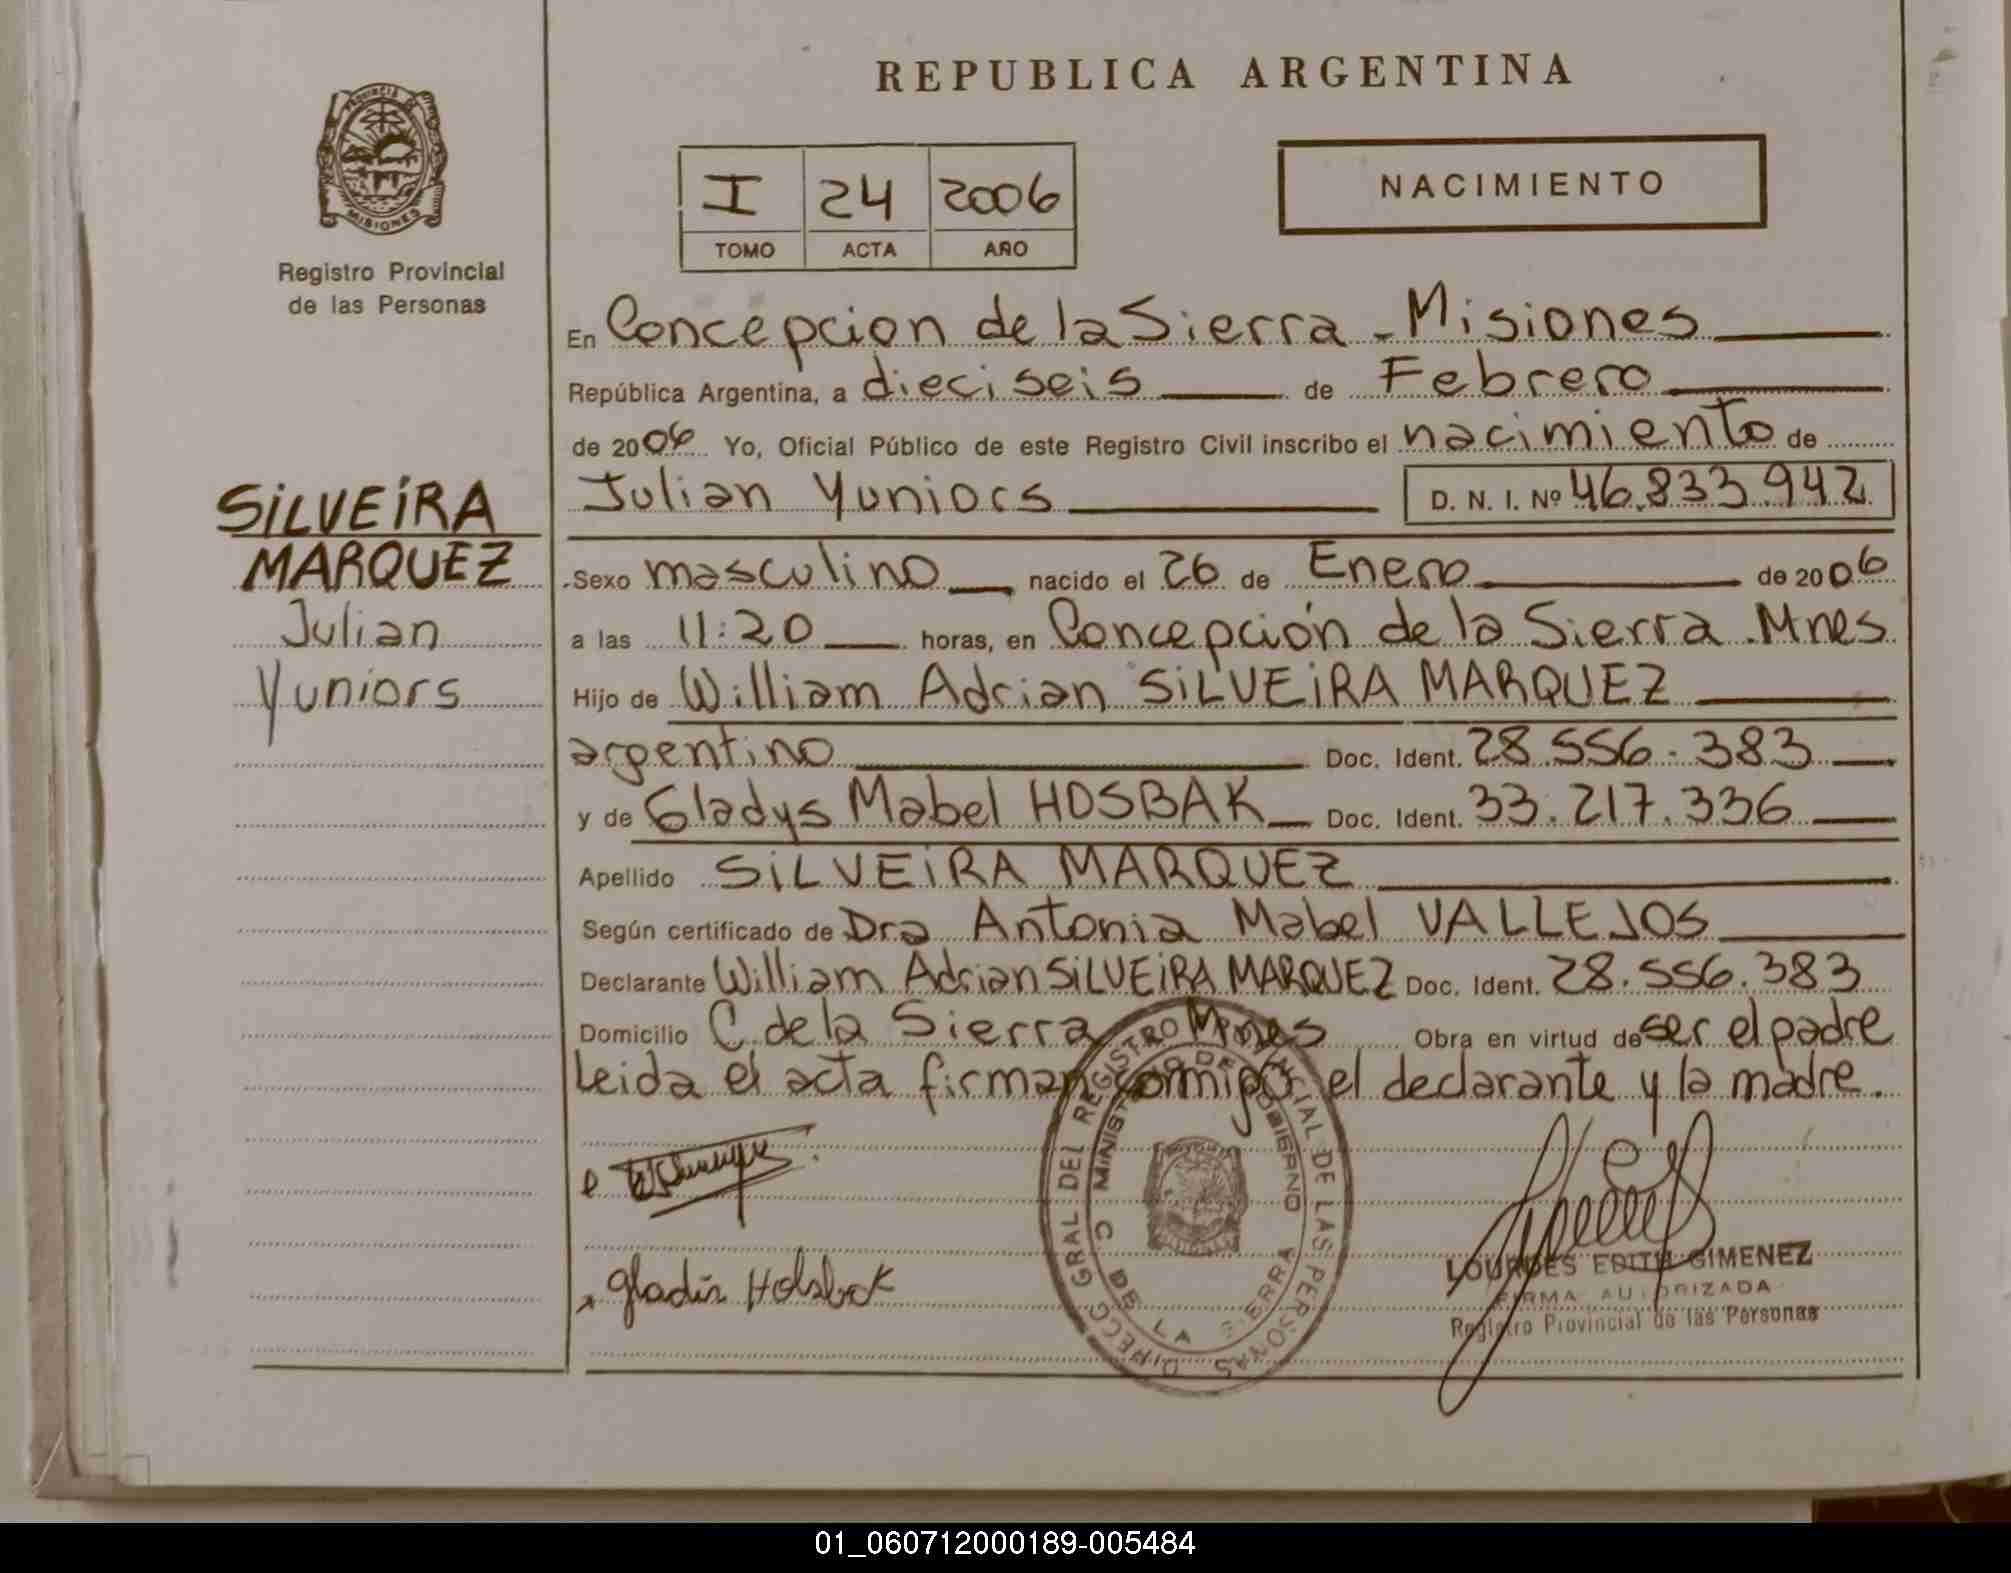 REPUBLICA ARGENTINA
PROVINCIA DE
MISIONES
Registro Provincial
de las Personas
I 24 2006
TOMO ACTA AÑO
NACIMIENTO
En Concepcion de la Sierra - Misiones
República Argentina, a dieciseis de Febrero
de 2006 Yo, Oficial Público de este Registro Civil inscribo el nacimiento de
Julian Yuniors D. N. I. Nº 46.833.942
SiLVEiRA
MARQUEZ
Julian
Yuniors
Sexo masculino nacido el 26 de Enero de 2006
a las 11:20 horas, en Concepción de la Sierra. Mnes
Hijo de William Adrian SiLVEiRA MARQUEZ
argentino Doc. Ident. 28.556.383
y de Gladys Mabel HOSBAK Doc. Ident. 33.217.336
Apellido SiLVEiRA MARQUEZ
Según certificado de Dra Antonia Mabel VALLEJOS
Declarante William Adrian SiLVEiRA MARQUEZ Doc. Ident. 28.556.383
Domicilio C. de la Sierra Mnes Obra en virtud de ser el padre
Leida el acta firman conmigo el declarante y la madre.
DIRECC GRAL DEL REGISTRO PROVINCIAL DE LAS PERSONAS
MINISTERIO DE GOBIERNO
C DE LA SIERRA
LOURDES EDITH GIMENEZ
FIRMA AUTORIZADA
Registro Provincial de las Personas
01_060712000189-005484